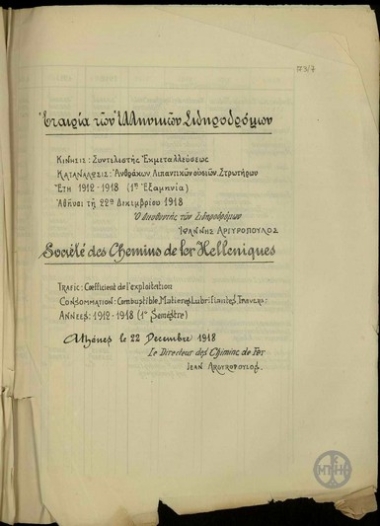 153/7
Ἑταιρία τῶν Ἑλληνικῶν Σιδηροδρόμων
Κίνησις: Συντελεστὴς Ἐκμεταλλεύσεως
Κατανάλωσις: Ἀνθράκων Λιπαντικῶν οὐσιῶν Στρωτήρων
Ἔτη 1912-1918 (1η Ἑξαμηνία)
Ἀθῆναι τῇ 22ᾳ Δεκεμβρίου 1918
Ὁ διευθυντὴς τῶν Σιδηροδρόμων
Ἰωάννης Αργυρόπουλος
Société des Chemins de for Helleniques
Trafic: Coefficient de l'exploitation
Consommation: Combustible, Matieres Lubrifiantes,
Annees: 1912-1918 (1er Semestre)
Athénes le 22 Decembre 1918
Le Directeur des Chimins de Fer
Jean